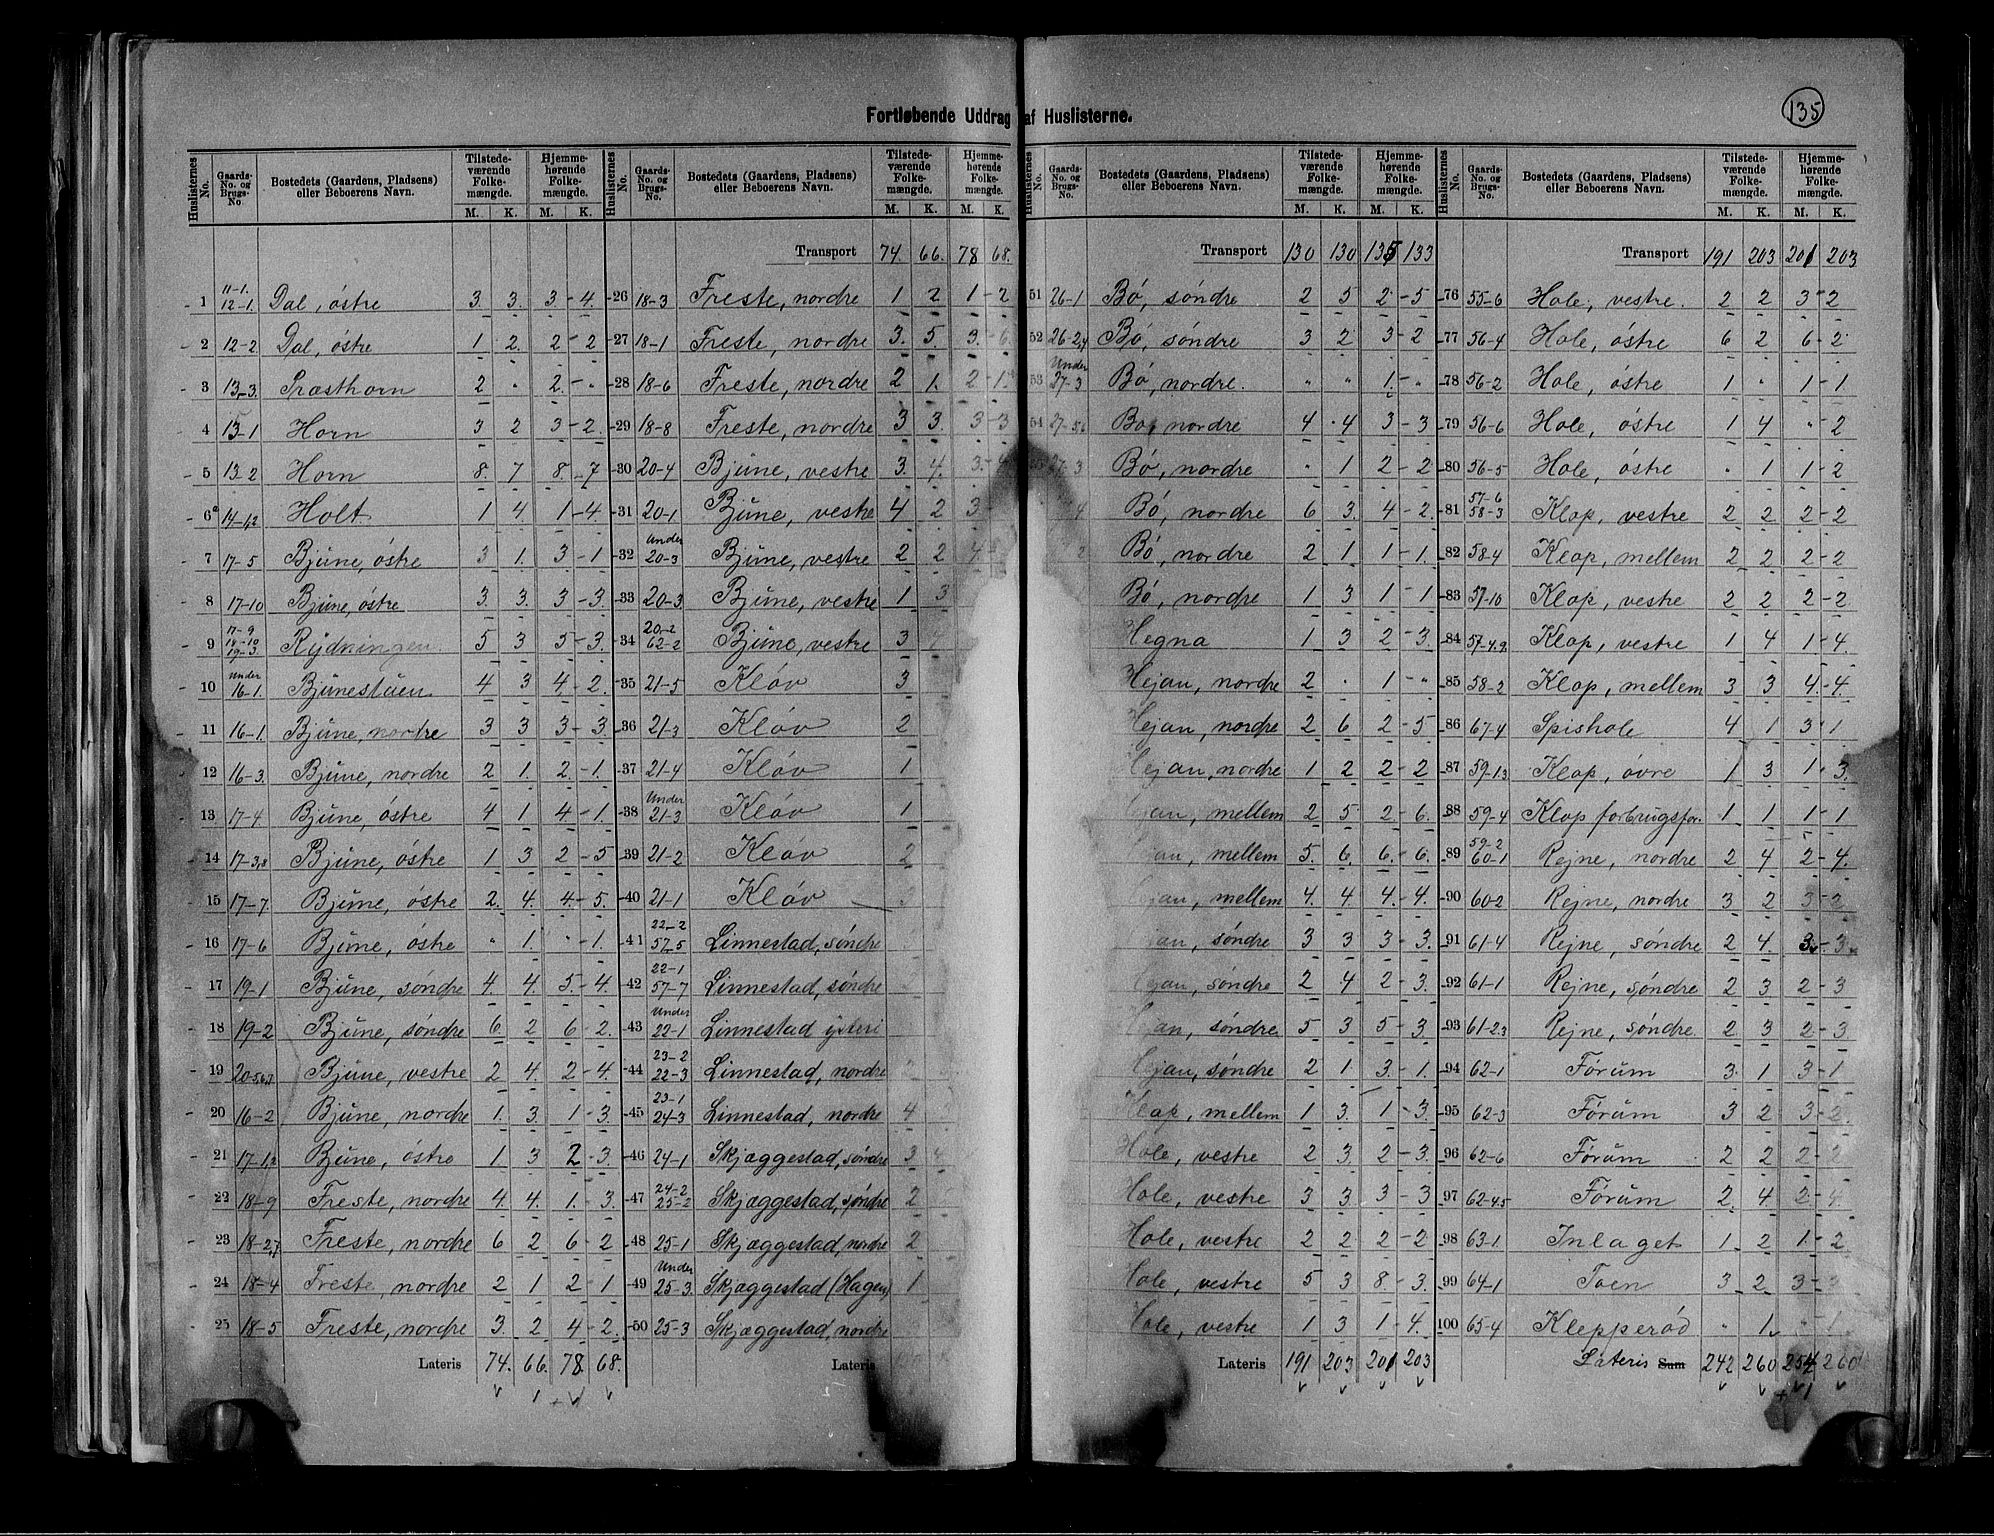 135
Fortløbende Uddrag af Huslisterne.
Huslisternes No. Gaards-No. og Brugs-No Bostedets (Gaardens, Pladsens) eller Beboerens Navn. Tilstedeværende Folkemængde. M. K. Hjemmehørende Folkemængde. M. K.
1 11-1. 12-1. Dal, östre 3. 3. 3 - 4.
2 12-2 Dal, östre 1 2. 2 - 2
3 13-3. Præsthorn 2 " 2. - "
4 13-1 Horn 3 2 3 - 2.
5 13-2 Horn 8. 7 8. - 7
6 14-1,2 Holt 1 4. 1 - 4.
7 17-5 Bjune, östre 3 1. 3 - 1
8 17-10 Bjune, östre 3. 3. 3 - 3.
9 17-9 19-3 Rydningen 5 3 5 - 3.
10 under 16-1. Bjunestuen 4 3 4 - 2.
11 16-1. Bjune, nordre 3 3 3 - 3.
12 16-3. Bjune, nordre 2 1. 2. - 1.
13 17-4 Bjune, östre 4 1 4 - 1.
14 17-3,8 Bjune, östre 1 3 2 - 5
15 17-7. Bjune, östre 2. 4. 4 - 5.
16 17-6 Bjune, östre " 1. " - 1.
17 19-1 Bjune, söndre 4 4. 5. - 4.
18 19-2 Bjune, söndre 6 2 6 - 2.
19 Bjune, vestre 2 4. 2 - 4.
20 16-2 Bjune, nordre 1. 3. 1 - 3.
21 17-1,2 Bjune, östre 1. 3 2 - 3.
22 18-9 Freste, nordre 4. 4. 1. - 3.
23 18-2,7 Freste, nordre 6 2 6 - 2
24 18-4 Freste, nordre 2 1 2 - 1
25 18-5 Freste, nordre 3. 2 4 - 2.
Lateris 74. 66. 78. 68.
Huslisternes No. Gaards-No. og Brugs-No. Bostedets (Gaardens, Pladsens) eller Beboerens Navn. Tilstedeværende Folkemængde. M. K. Hjemmehørende Folkemængde. M. K.
Transport 74. 66. 78 68.
26 18-3 Freste, nordre 1 2 1 - 2
27 18-1 Freste, nordre 3. 5. 3. - 6.
28 18-6 Freste, nordre 2 1. 2 - 1
29 18-8 Freste, nordre 3 3. 3 - 3
30 20-4 Bjune, vestre 3. 4. 3. -
31 20-1 Bjune, vestre 4 2 3 -
32 under 20-3 Bjune, vestre 2 2 4
33 20-3 Bjune, vestre 1 3
34 20-2 62-2 Bjune, vestre 3
35 21-5 Klöv 3
36 21-3 Klöv 2
37 21-4 Klöv 1
38 under 21-3 Klöv 1
39 21-2 Klöv 2
40 21-1 Klöv
41 22-2 57-5 Linnestad, söndre
42 22-1 57-7 Linnestad, söndre
43 under 22-1 Linnestad ysteri
44 23-2 22-3 Linnestad, nordre
45 23-1 24-3 Linnestad, nordre 4
46 24-1 Skjæggestad, söndre 3
47 24-2 25-2 Skjæggestad, söndre 2
48 25-1 Skjæggestad, nordre 2
49 under 25-3. Skjæggestad (Hagen) 1
50 25-3 Skjæggestad, nordre
Lateris
Huslisternes No. Gaards-No. og Brugs-No. Bostedets (Gaardens, Pladsens) eller Beboerens Navn. Tilstedeværende Folkemængde. M. K. Hjemmehørende Folkemængde. M. K.
Transport 130 130 135 133
51 26-1 Bö, söndre 2 5 2 - 5
52 26-2,4 Bö, söndre 3 2 3 - 2
53 under 27-3 Bö, nordre. " " 1. - "
54 Bö, nordre 4 4 3 - 3
Bö, nordre " 1 2 - 2
Bö, nordre 6 3. 4 - 2.
Bö, nordre 2 1 1 - 1.
Bö, nordre 1 3 1 - 1
Hegna 1 3 2 - 3
Hejan, nordre 2 . 1 - "
Hejan, nordre 2 6 2 - 5
Hejan, nordre 1 2 2 - 2
mellem 2 5 2 - 6.
mellem 5. 6. 6. - 6.
mellem 4. 4 4. - 4.
söndre 3 3 3 - 3.
söndre 2 4 2 - 3.
söndre 5 3 5 - 3
Hejan, söndre 2 1 3. - 1.
Klop, mellem 1 3. 1 - 3.
Hole, vestre 2 3. 2 - 3.
Hole, vestre 3 3. 3 - 3
Hole, vestre 2 2 2 - 2
Hole, vestre 5 3 8 - 3.
Hole, vestre 1 3 1 - 4.
Lateris 191 203 201 203
Huslisternes No. Gaards-No. og Brugs-No. Bostedets (Gaardens, Pladsens) eller Beboerens Navn. Tilstedeværende Folkemængde. M. K. Hjemmehørende Folkemængde. M. K.
Transport 191 203 201 203
76 55-6 Hole, vestre. 2 2 3 - 2
77 56-4 Hole, östre 6 2 6 - 2
78 56-2 Hole, östre 1 " 1 - 1.
79 56-6 Hole, östre 1 4 " - 2
80 56-5 Hole, östre " 1 1 - 2
81 57-6 58-3 Klop, vestre 2 2 2 - 2
82 58-4 Klop, mellem 2 2 2 - 2
83 57-10 Klop, vestre 2 2 2 - 2.
84 57-4.9. Klop, vestre 1 4 1 - 4.
85 58-2 Klop, mellem 3 3 4. - 4.
86 67-4 Spishole 4 1 3 - 1
87 59-1.3 Klop, övre 1 3 1 - 3.
88 59-4 Klop forbrugsfor. 1 1 1 - 1
89 59-2 60-1 Rejne, nordre 2 4 2 - 4.
90 60-2 Rejne, nordre 3 2 3 - 2
91 61-4 Rejne, söndre 2 4. 3. - 3.
92 61-1 Rejne, söndre 2 3 2 - 3
93 61-2,3 Rejne, söndre. 2 3 2 - 3
94 62-1 Förum 3. 1 3 - 1
95 62-3 Förum 3 2 3 - 2.
96 62-6 Förum 2 2 2 - 2
97 62-4.5 Förum 2. 4 2 - 4.
98 63-1. Inlaget 1 2 1. - 2
99 64-1 Toen 3 2 3 - 3
100 65-4 Klepperöd " 1. " - 1
Lateris Sum 242 260 254 260